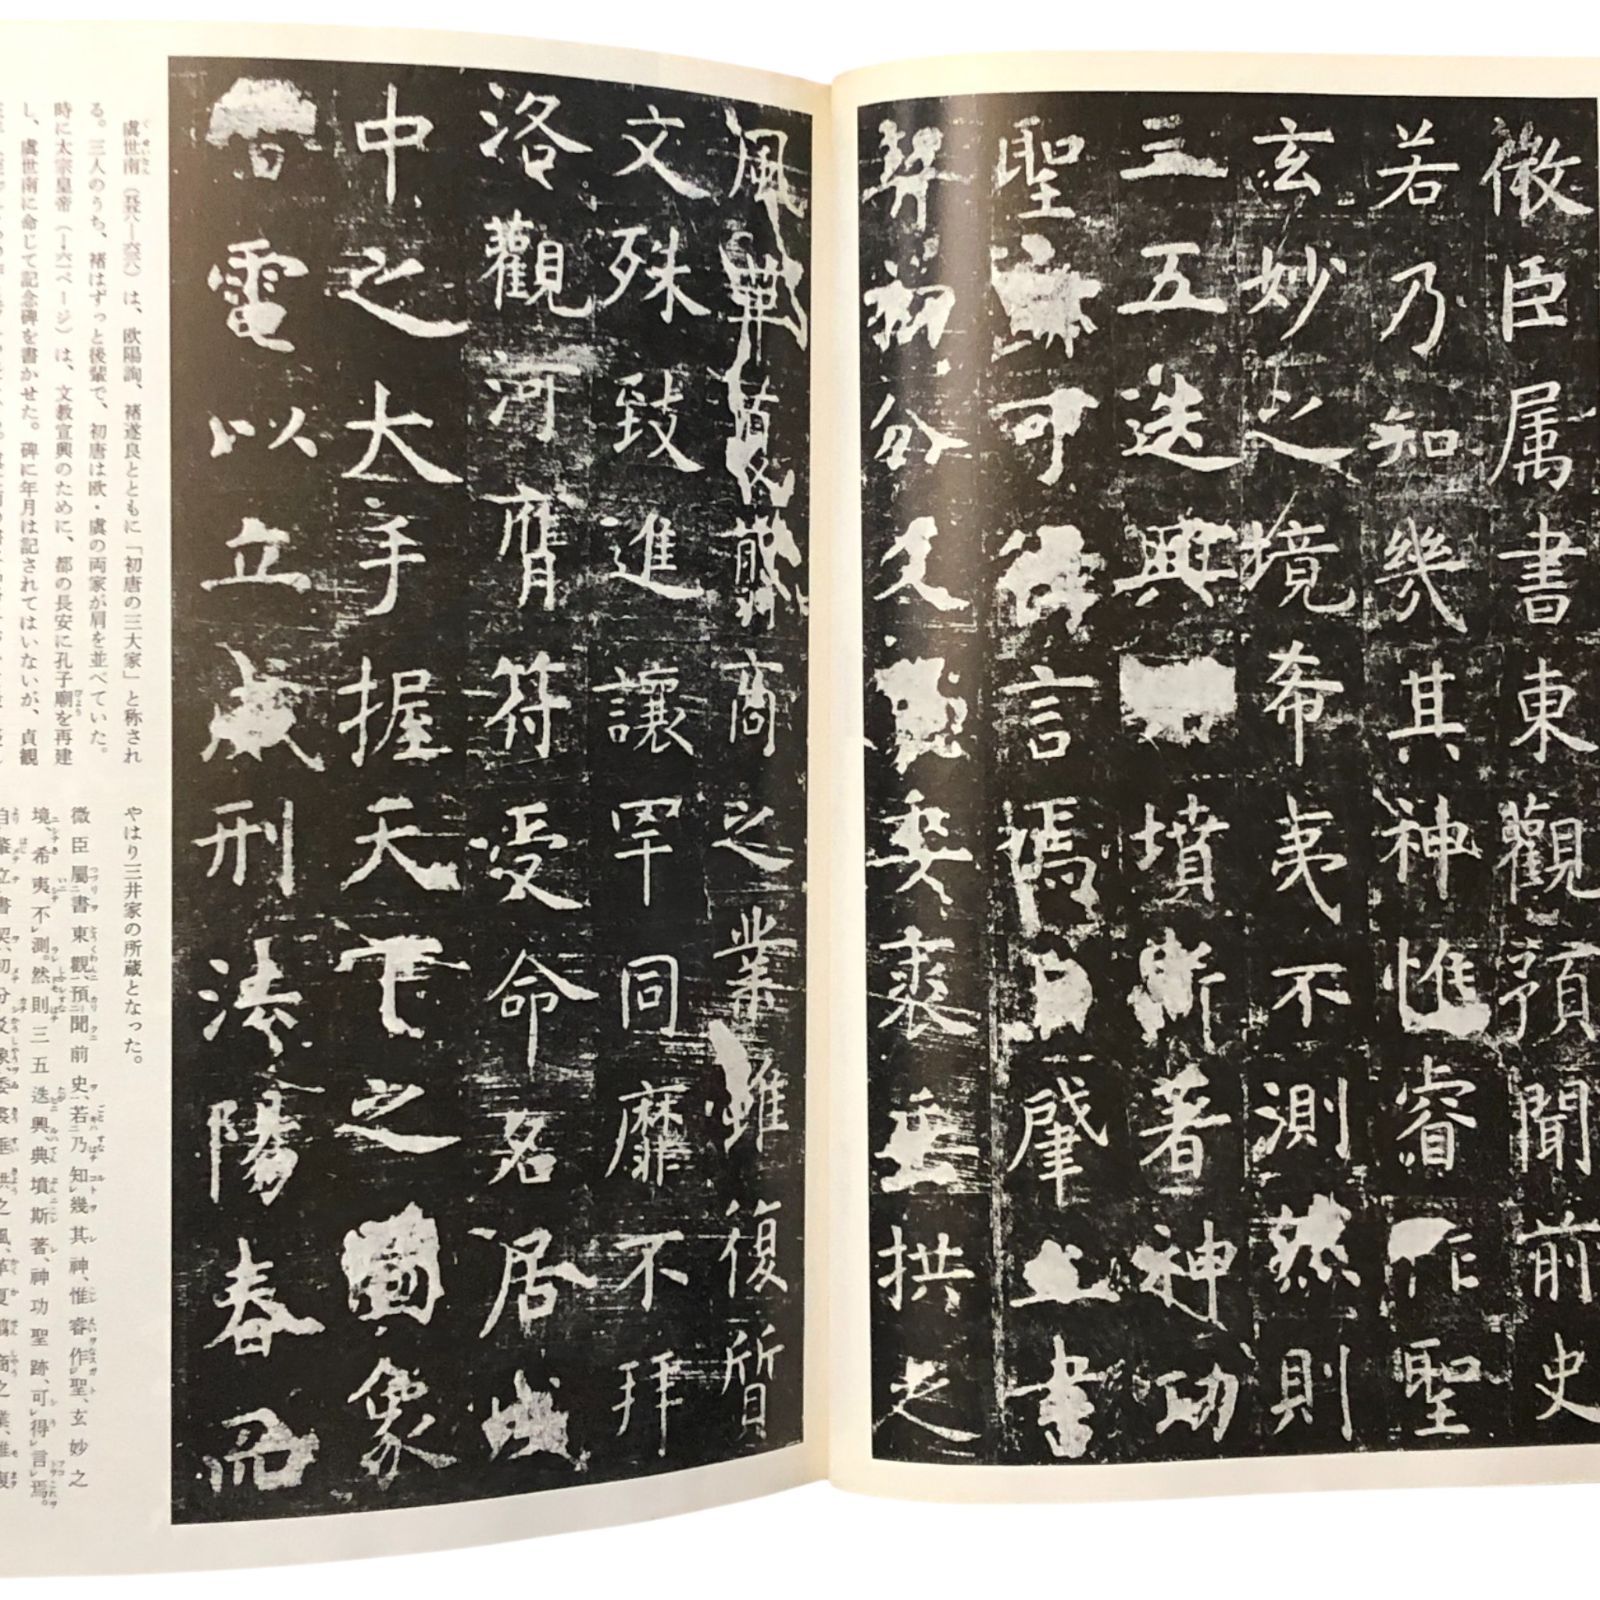 微臣属書東觀預聞前史
若乃知幾其神惟睿作聖
玄妙之境希夷不測然則
三五迭興墳斯著神功
聖迹可得言焉自肇立書
契初分爻象委裘垂拱之
風革夏翦商之業雖復質
文殊致進讓罕同靡不拜
洛觀河膺符受命名居域
中之大手握天下之圖象
電以立威刑法陽春而
虞世南（五五八―六三八）は、欧陽詢、褚遂良とともに「初唐の三大家」と称され
る。三人のうち、褚はずっと後輩で、初唐は欧・虞の両家が肩を並べていた。
時に太宗皇帝（一六一ページ）は、文教宣興のために、都の長安に孔子廟を再建
し、虞世南に命じて記念碑を書かせた。碑に年月は記されてはいないが、貞観
やはり三井家の所蔵となった。
微臣屬書東觀、預聞前史、若乃知幾其神、惟睿作聖、玄妙之
境、希夷不測。然則三五迭興、典墳斯著、神功聖跡、可得言焉。
自肇立書契、初分爻象、委裘垂拱之風、革夏翦商之業、雖復